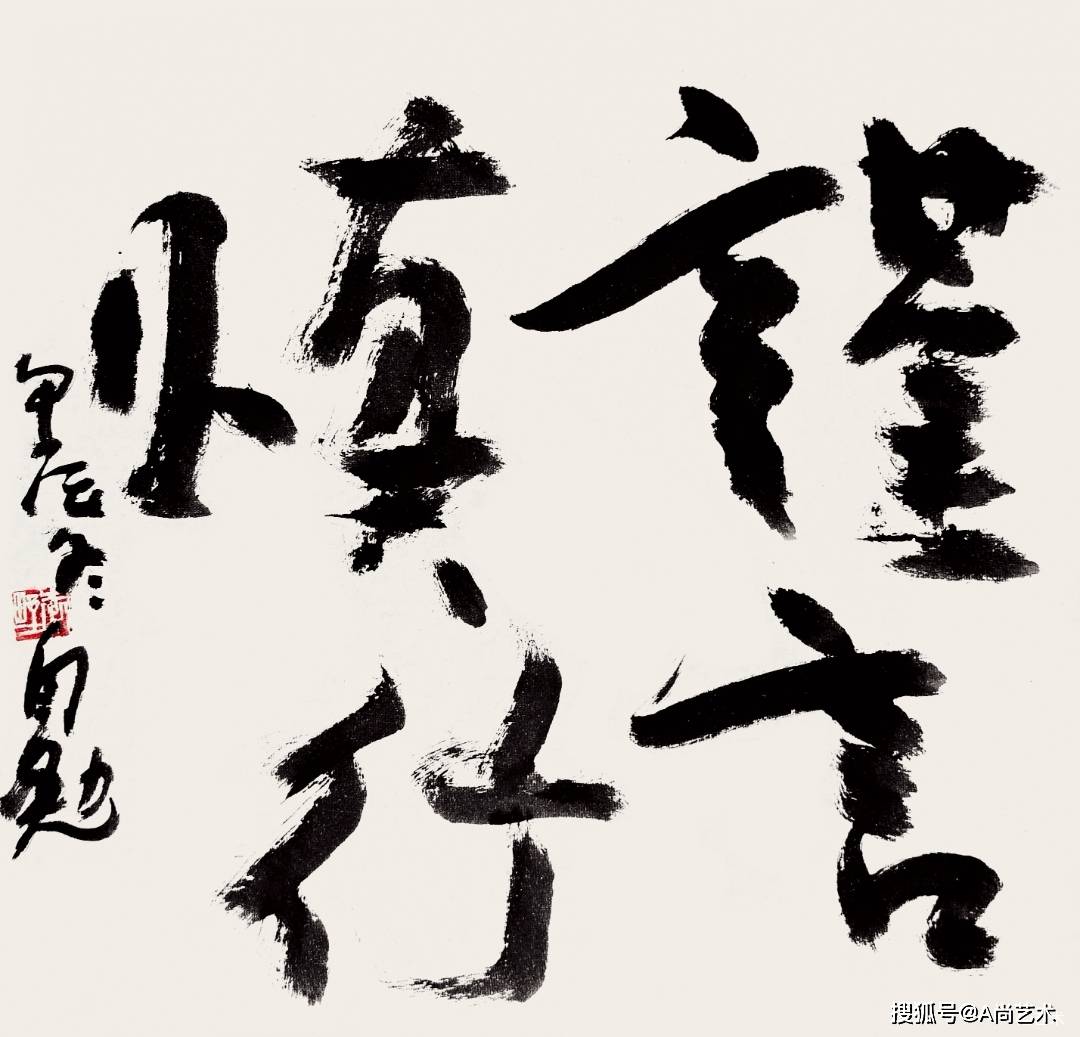 謹言
慎行
甲辰冬自勉
搜狐号@A尚艺术